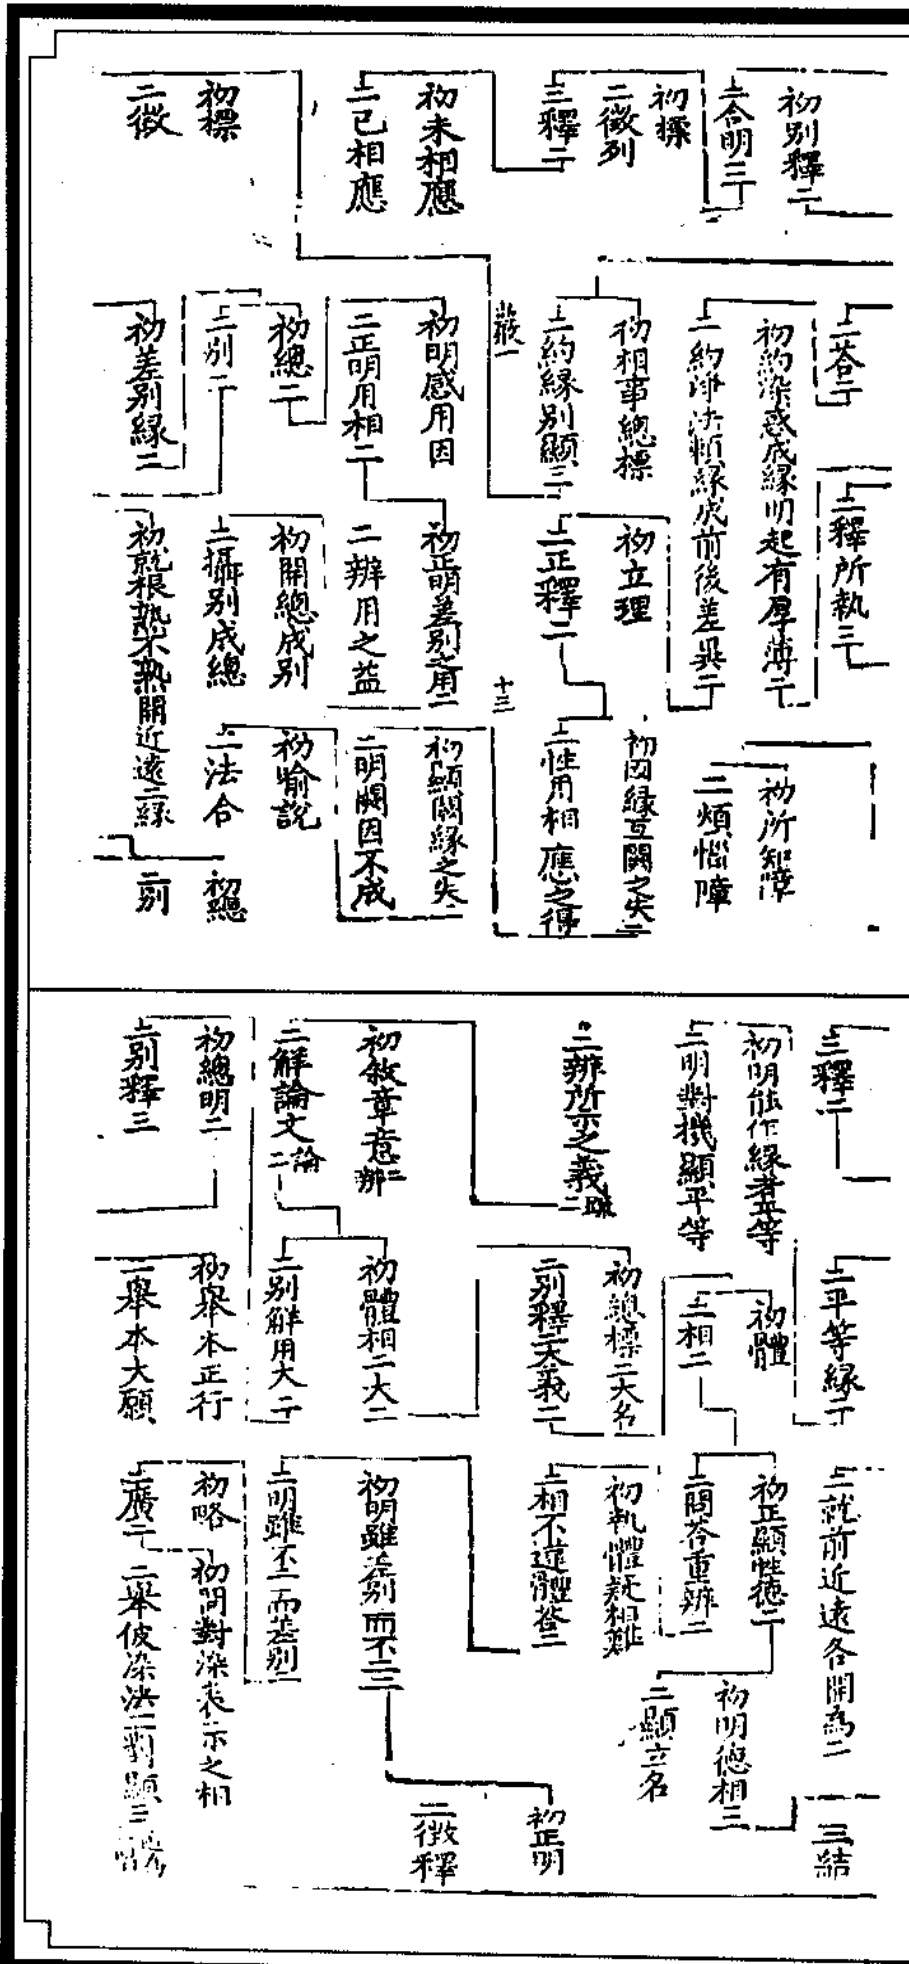 初別釋二
二合明三
初標
二徵列
三釋二
初未相應
二已相應
初標
二徵
二荅二
初約染惑成緣明起有厚薄二
二約淨法賴緣成前後差異二
初相事總標
二約緣別顯三
初明感用因
二正明用相二
初總二
二別二
初差別緣二
二釋所執三
初立理
二正釋二
十三
初正明差別之用二
二辨用之益
初開總成別
二攝別成總
初就根熟不熟開近遠二緣
初所知障
二煩惱障
初因緣互闕之失二
二性用相應之得
初顯闕緣之失
二明闕因不成
初喻說
二法合
初總
二別
三釋二
初明能作緣者平等
二明對機顯平等
二辨所示之義二疏
初敘章意二辨
二解論文二論
初總明二
二別釋三
二平等緣二
初體
二相二
初總標二大名
二別釋二大義二
初體相二大二
二別解用大二
初舉本正行
二舉本大願
二就前近遠各開為二
初正顯性德二
二問荅重辨二
初執體疑相難
二相不違體荅二
初明雖差別而不二三
二明雖不二而差別二
初略
二廣二
三結
初明德相三
二顯立名
初正明
二徵釋
初問對染表示之相
二舉彼染法二對顯三